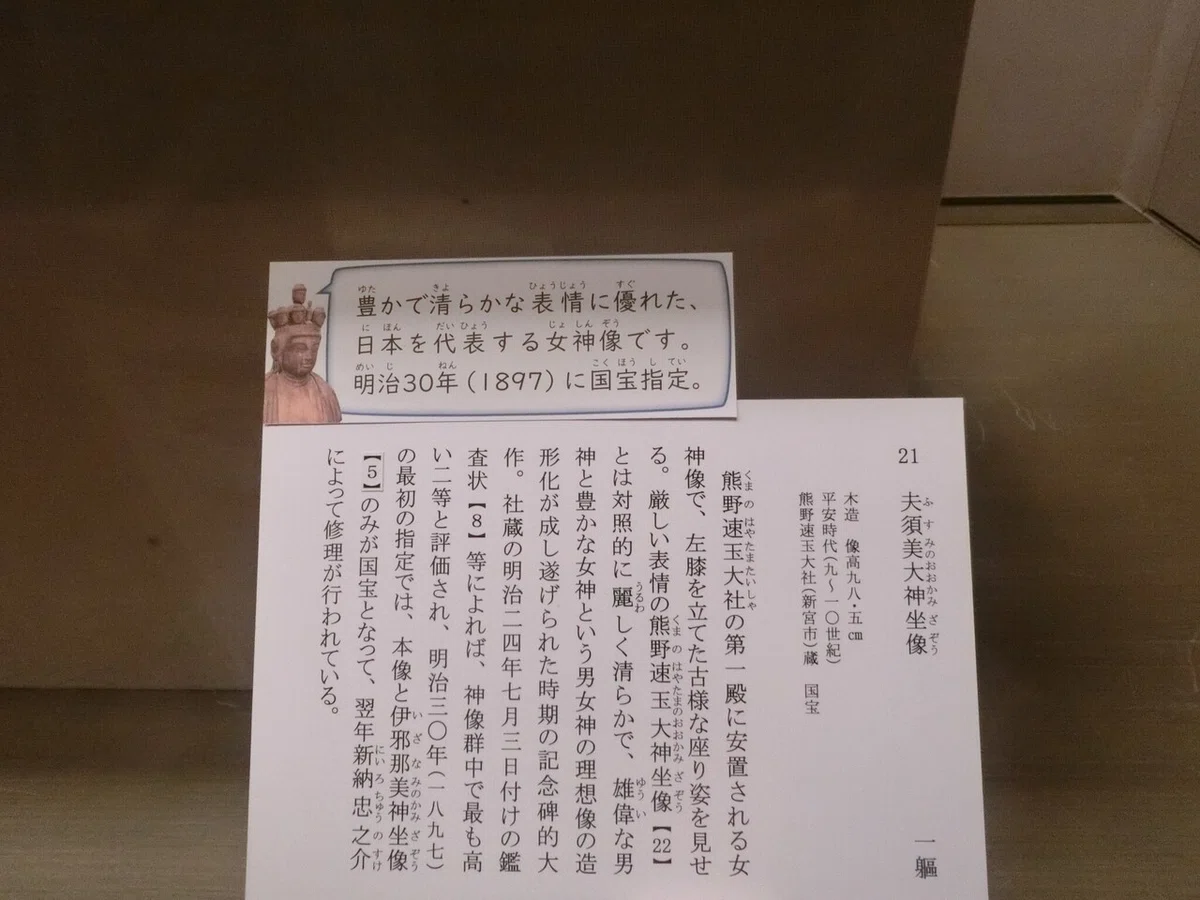 豊かで清らかな表情に優れた、
日本を代表する女神像です。
明治30年(1897)に国宝指定。
21 夫須美大神坐像 一軀
木造 像高九八・五㎝
平安時代(九〜一〇世紀)
熊野速玉大社(新宮市)蔵 国宝
熊野速玉大社の第一殿に安置される女
神像で、左膝を立てた古様な座り姿を見せ
る。厳しい表情の熊野速玉大神坐像【22】
とは対照的に麗しく清らかで、雄偉な男
神と豊かな女神という男女神の理想像の造
形化が成し遂げられた時期の記念碑的大
作。社蔵の明治二四年七月三日付けの鑑
査状【8】等によれば、神像群中で最も高
い二等と評価され、明治三〇年(一八九七)
の最初の指定では、本像と伊邪那美神坐像
【5】のみが国宝となって、翌年新納忠之介
によって修理が行われている。